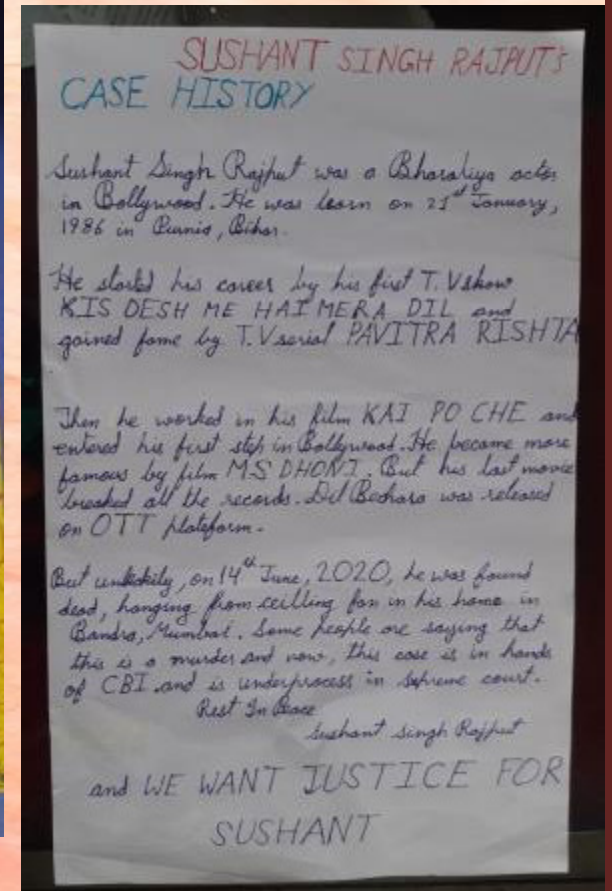 SUSHANT SINGH RAJPUT'S
CASE HISTORY
Sushant Singh Rajput was a Bharatiya actor
in Bollywood. He was born on 21st January,
1986 in Purnia, Bihar.
He started his career by his first T.V show
KIS DESH ME HAI MERA DIL and
gained fame by T.V serial PAVITRA RISHTA
Then he worked in his film KAI PO CHE and
entered his first step in Bollywood. He become more
famous by film MS DHONI. But his last movie
breaked all the records. Dil Bechara was released
on OTT plateform.
But unluckily, on 14th June, 2020, he was found
dead, hanging from ceilling fan in his home in
Bandra, Mumbai. Some people are saying that
this is a murder and now, this case is in hands
of CBI and is underprocess in supreme court.
Rest In Peace
Sushant Singh Rajput
and WE WANT JUSTICE FOR
SUSHANT